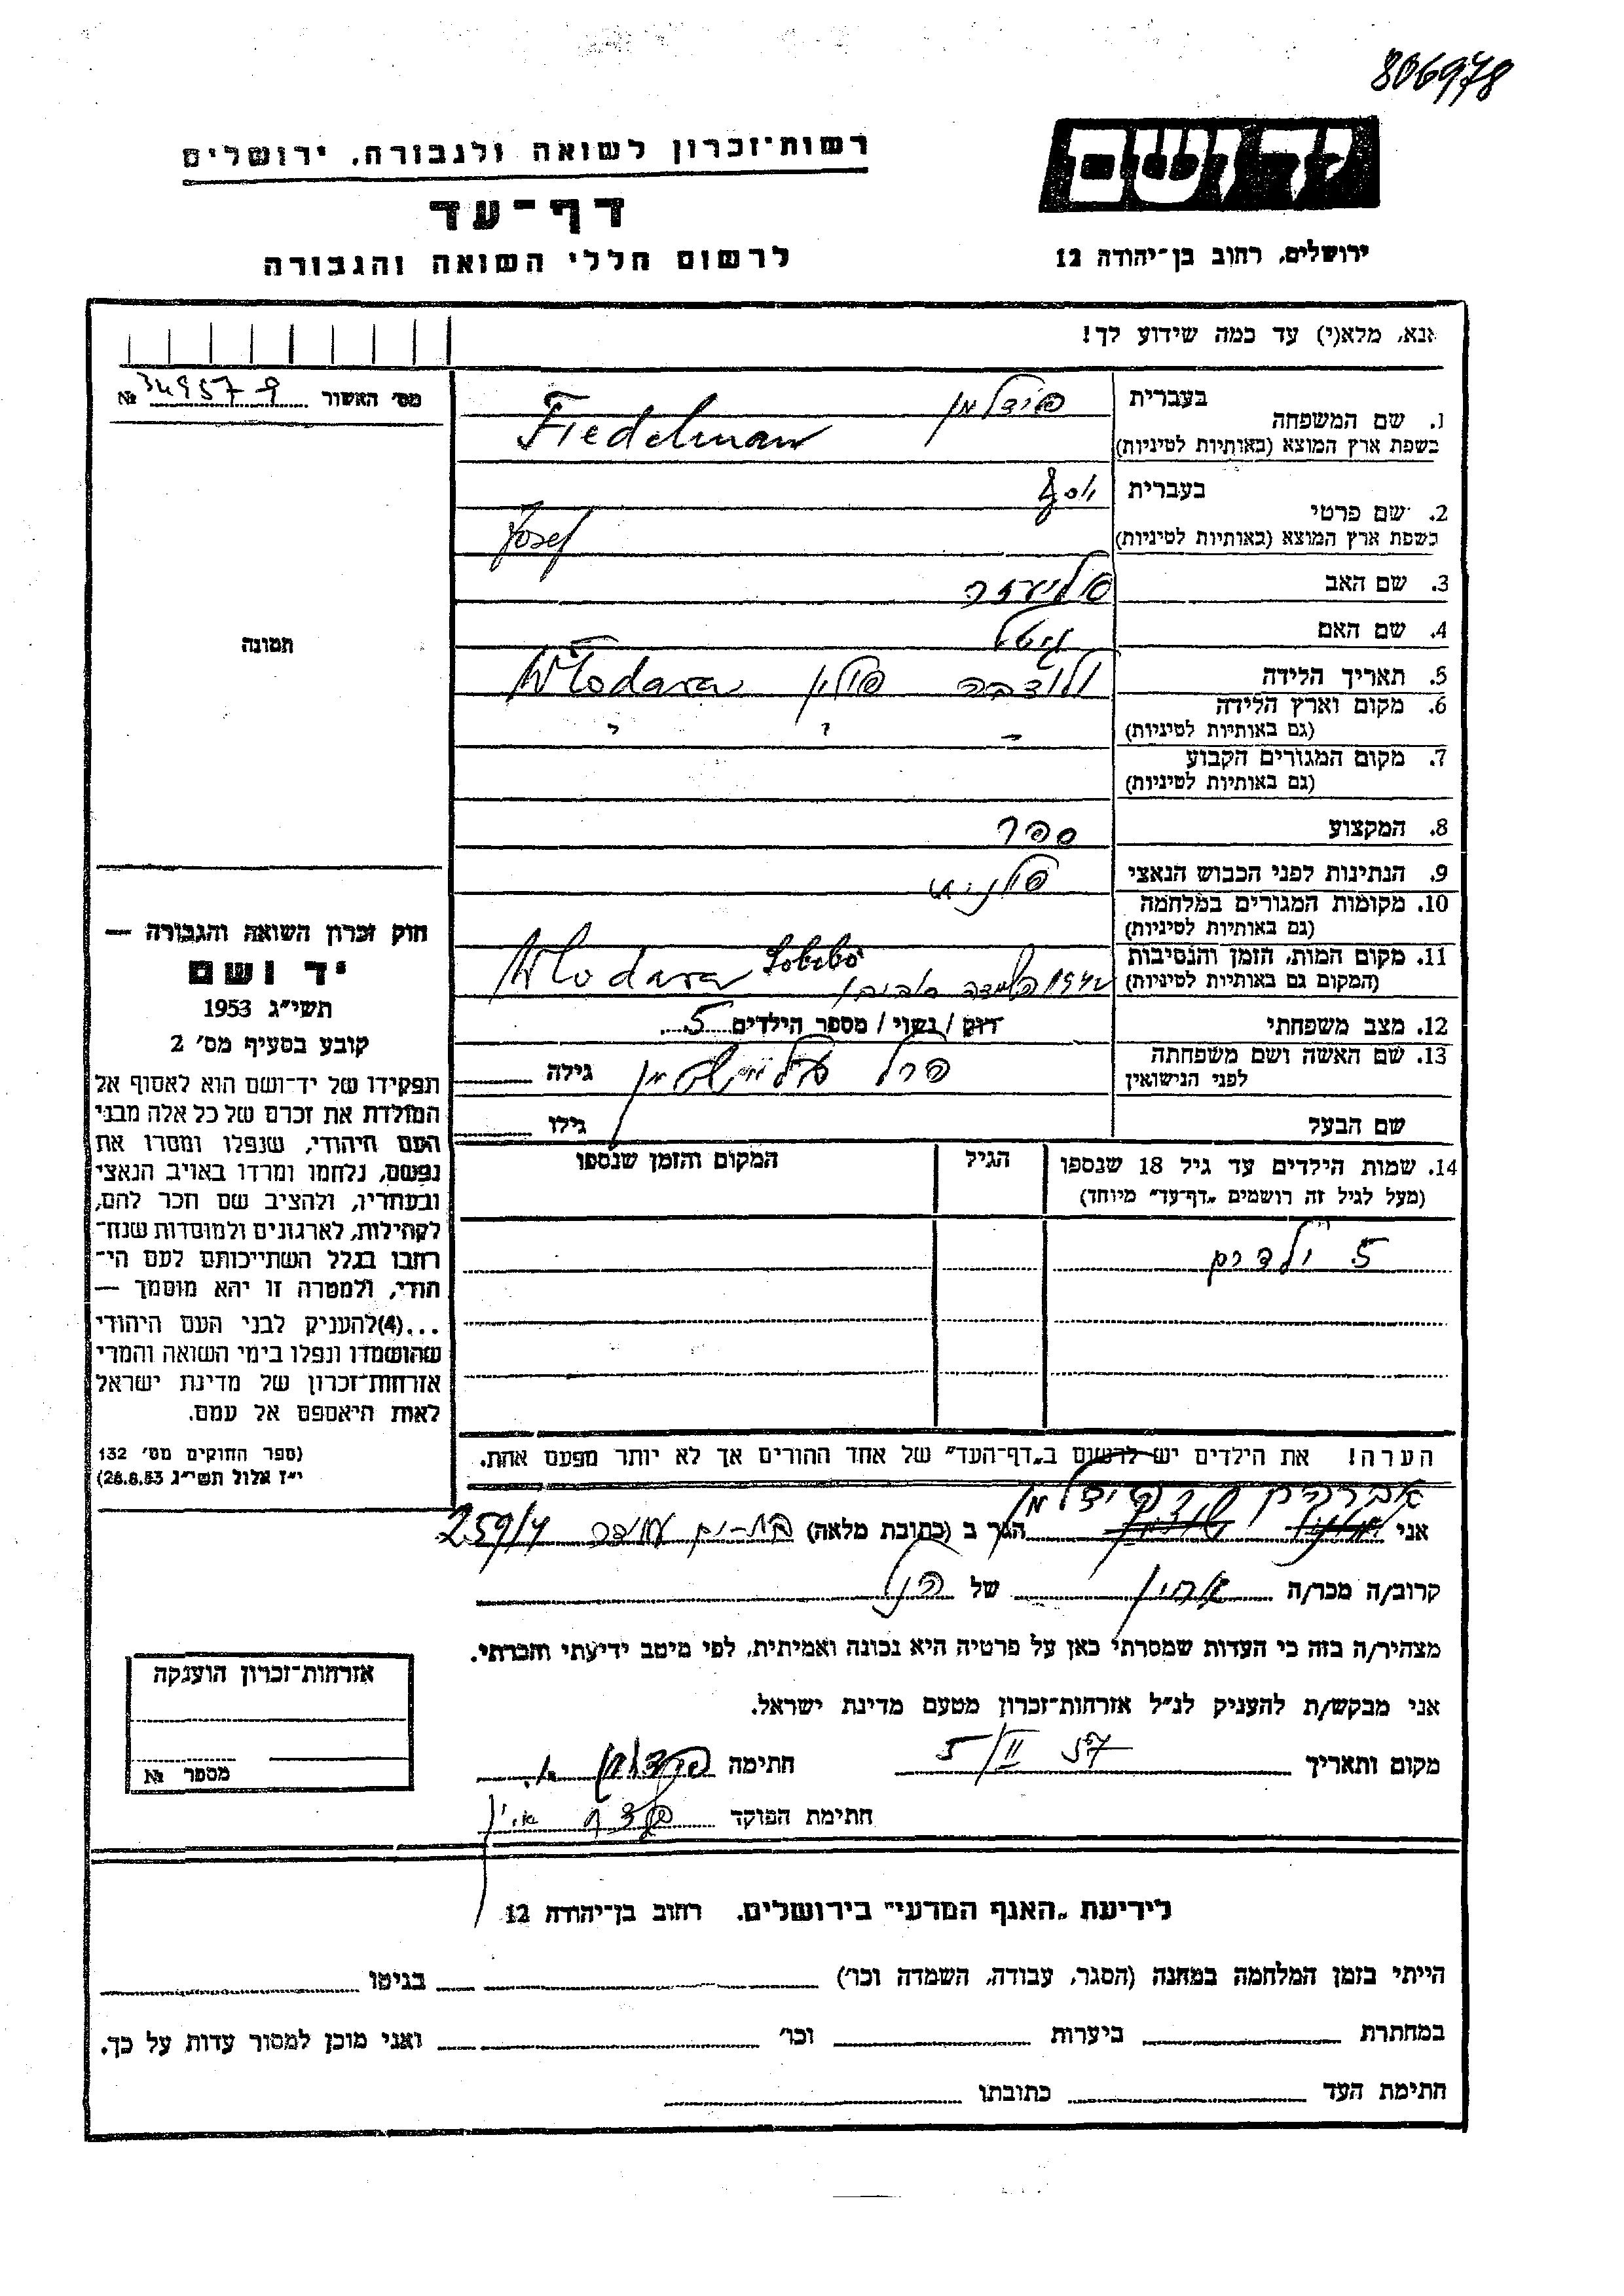 806978
יד ושם
רשות־זכרון לשואה ולגבורה, ירושלים
דף־עד
לרשום חללי השואה והגבורה
ירושלים, רחוב בן־יהודה 12
אנא, מלא(י) עד כמה שידוע לך!
מס׳ האשור 349579 №
1. שם המשפחה
בעברית פידלמן
בשפת ארץ המוצא (באותיות לטיניות) Fiedelman
2. שם פרטי
בעברית יוסף
בשפת ארץ המוצא (באותיות לטיניות) Josef
3. שם האב אליעזר
4. שם האם גיטל
5. תאריך הלידה
ולודבה פולין Włodawa
6. מקום וארץ הלידה
(גם באותיות לטיניות)
7. מקום המגורים הקבוע
(גם באותיות לטיניות)
8. המקצוע ספר
9. הנתינות לפני הכבוש הנאצי פולנית
10. מקומות המגורים במלחמה
(גם באותיות לטיניות)
11. מקום המות, הזמן והנסיבות
(המקום גם באותיות לטיניות) 1942 סוביבור Sobibo Włodawa
12. מצב משפחתי רווק / נשוי / מספר הילדים 5
13. שם האשה ושם משפחתה
לפני הנישואין פרל גילה
שם הבעל גילו
14. שמות הילדים עד גיל 18 שנספו
(מעל לגיל זה רושמים „דף־עד״ מיוחד)
הגיל
המקום והזמן שנספו
5 ילדים
תמונה
חוק זכרון השואה והגבורה —
יד ושם
תשי״ג 1953
קובע בסעיף מס׳ 2
תפקידו של יד־ושם הוא לאסוף אל
המולדת את זכרם של כל אלה מבני
העם היהודי, שנפלו ומסרו את
נפשם, נלחמו ומרדו באויב הנאצי
ובעוזריו, ולהציב שם וזכר להם,
לקהילות, לארגונים ולמוסדות שנח־
רבו בגלל השתייכותם לעם הי־
הודי, ולמטרה זו יהא מוסמך —
...(4)להעניק לבני העם היהודי
שהושמדו ונפלו בימי השואה והמרי
אזרחות־זכרון של מדינת ישראל
לאות היאספם אל עמם.
(ספר החוקים מס׳ 132
י״ז אלול תשי״ג 28.8.53)
הערה! את הילדים יש לרשום ב„דף־העד״ של אחד ההורים אך לא יותר מפעם אחת.
אברהם פידלמן
אני הגר ב (כתובת מלאה) בת-ים עמידר 259/4
קרוב/ה מכר/ה אחיין של הנ״ל
מצהיר/ה בזה כי העדות שמסרתי כאן על פרטיה היא נכונה ואמיתית, לפי מיטב ידיעתי והכרתי.
אני מבקש/ת להעניק לנ״ל אזרחות־זכרון מטעם מדינת ישראל.
מקום ותאריך 5/II 57 חתימה פידלמן א.
חתימת הפוקד
אזרחות־זכרון הוענקה
מספר №
לידיעת „האגף המדעי״ בירושלים. רחוב בן־יהודה 12
הייתי בזמן המלחמה במחנה (הסגר, עבודה, השמדה וכו׳) בגיטו
במחתרת ביערות וכו׳ ואני מוכן למסור עדות על כך.
חתימת העד כתובתו